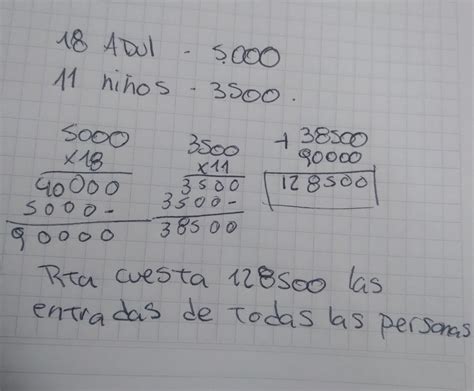 18 Adul - 5000
11 niños - 3500.
5000
x18
40000
5000-
90000
3500
x11
3500
3500-
38500
+ 38500
90000
128500
Rta cuesta 128500 las
entradas de todas las personas